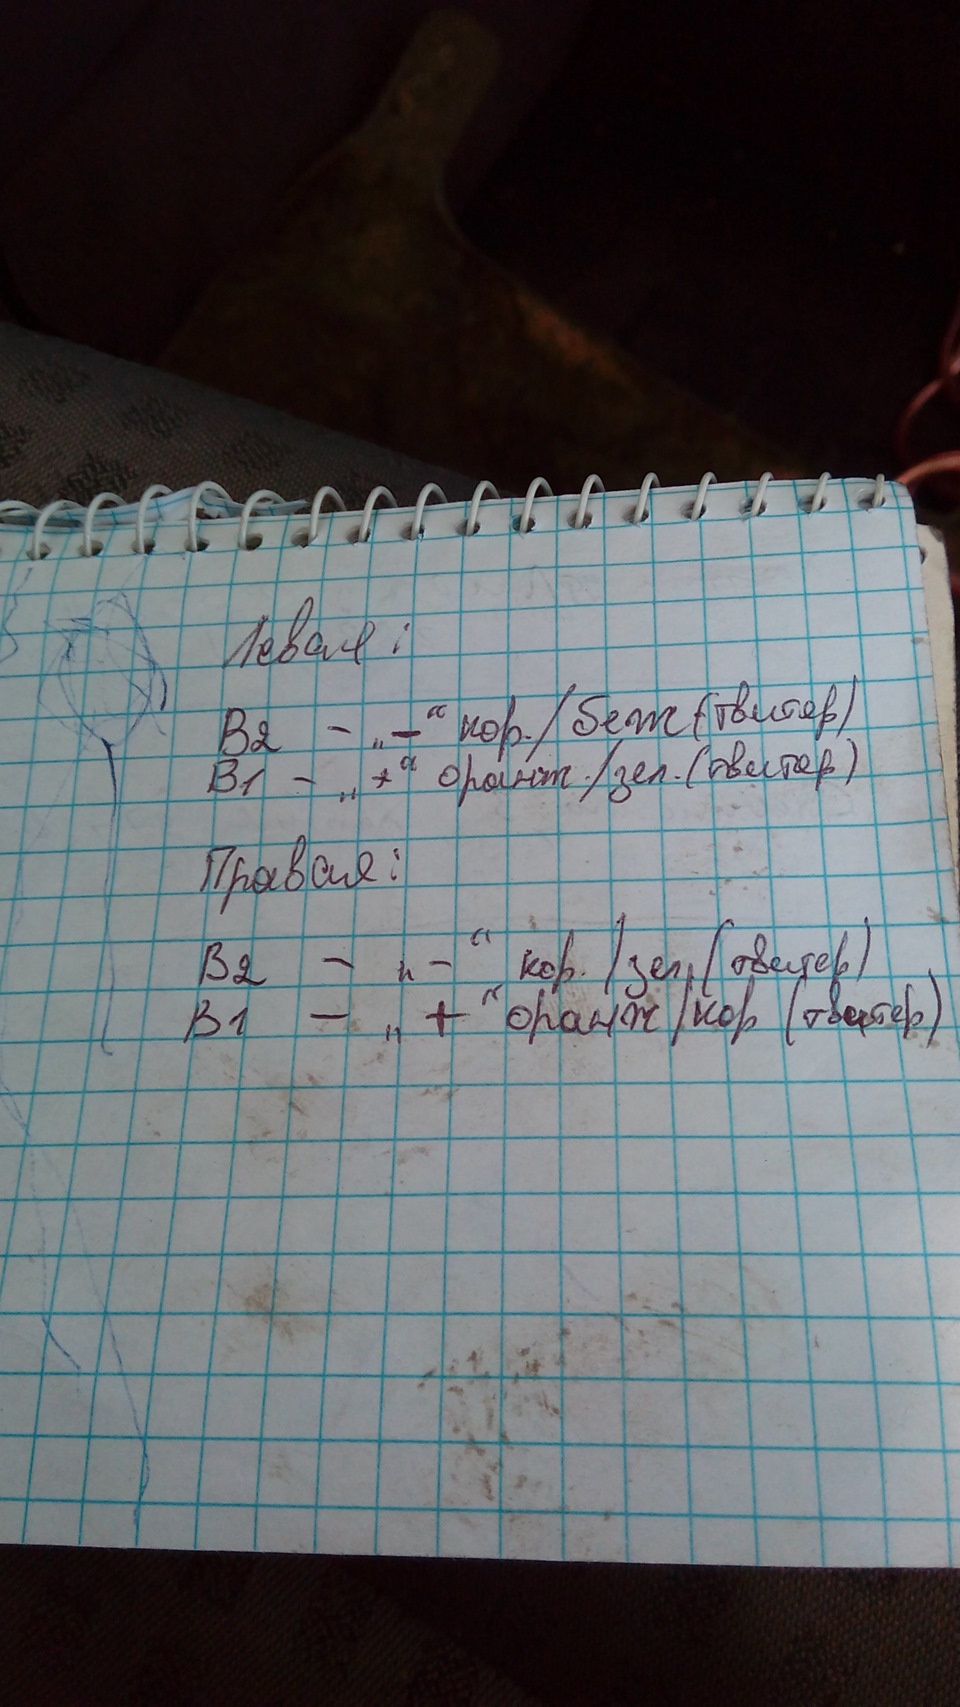 Левая:
B2 – „–“ кор./беж (твитер)
B1 – „+“ оранж./зел. (твитер)
Правая:
B2 – „–“ кор./зел. (твитер)
B1 – „+“ оранж/кор (твитер)